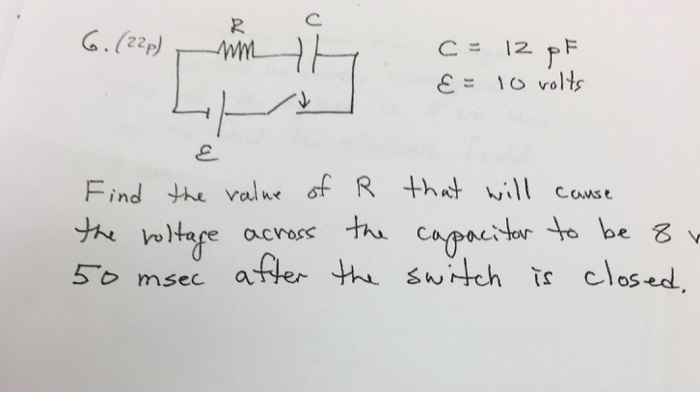 R C
6. (22p) C = 12 pF
ε = 10 volts
ε
Find the value of R that will cause
the voltage across the capacitor to be 8 v
50 msec after the switch is closed.